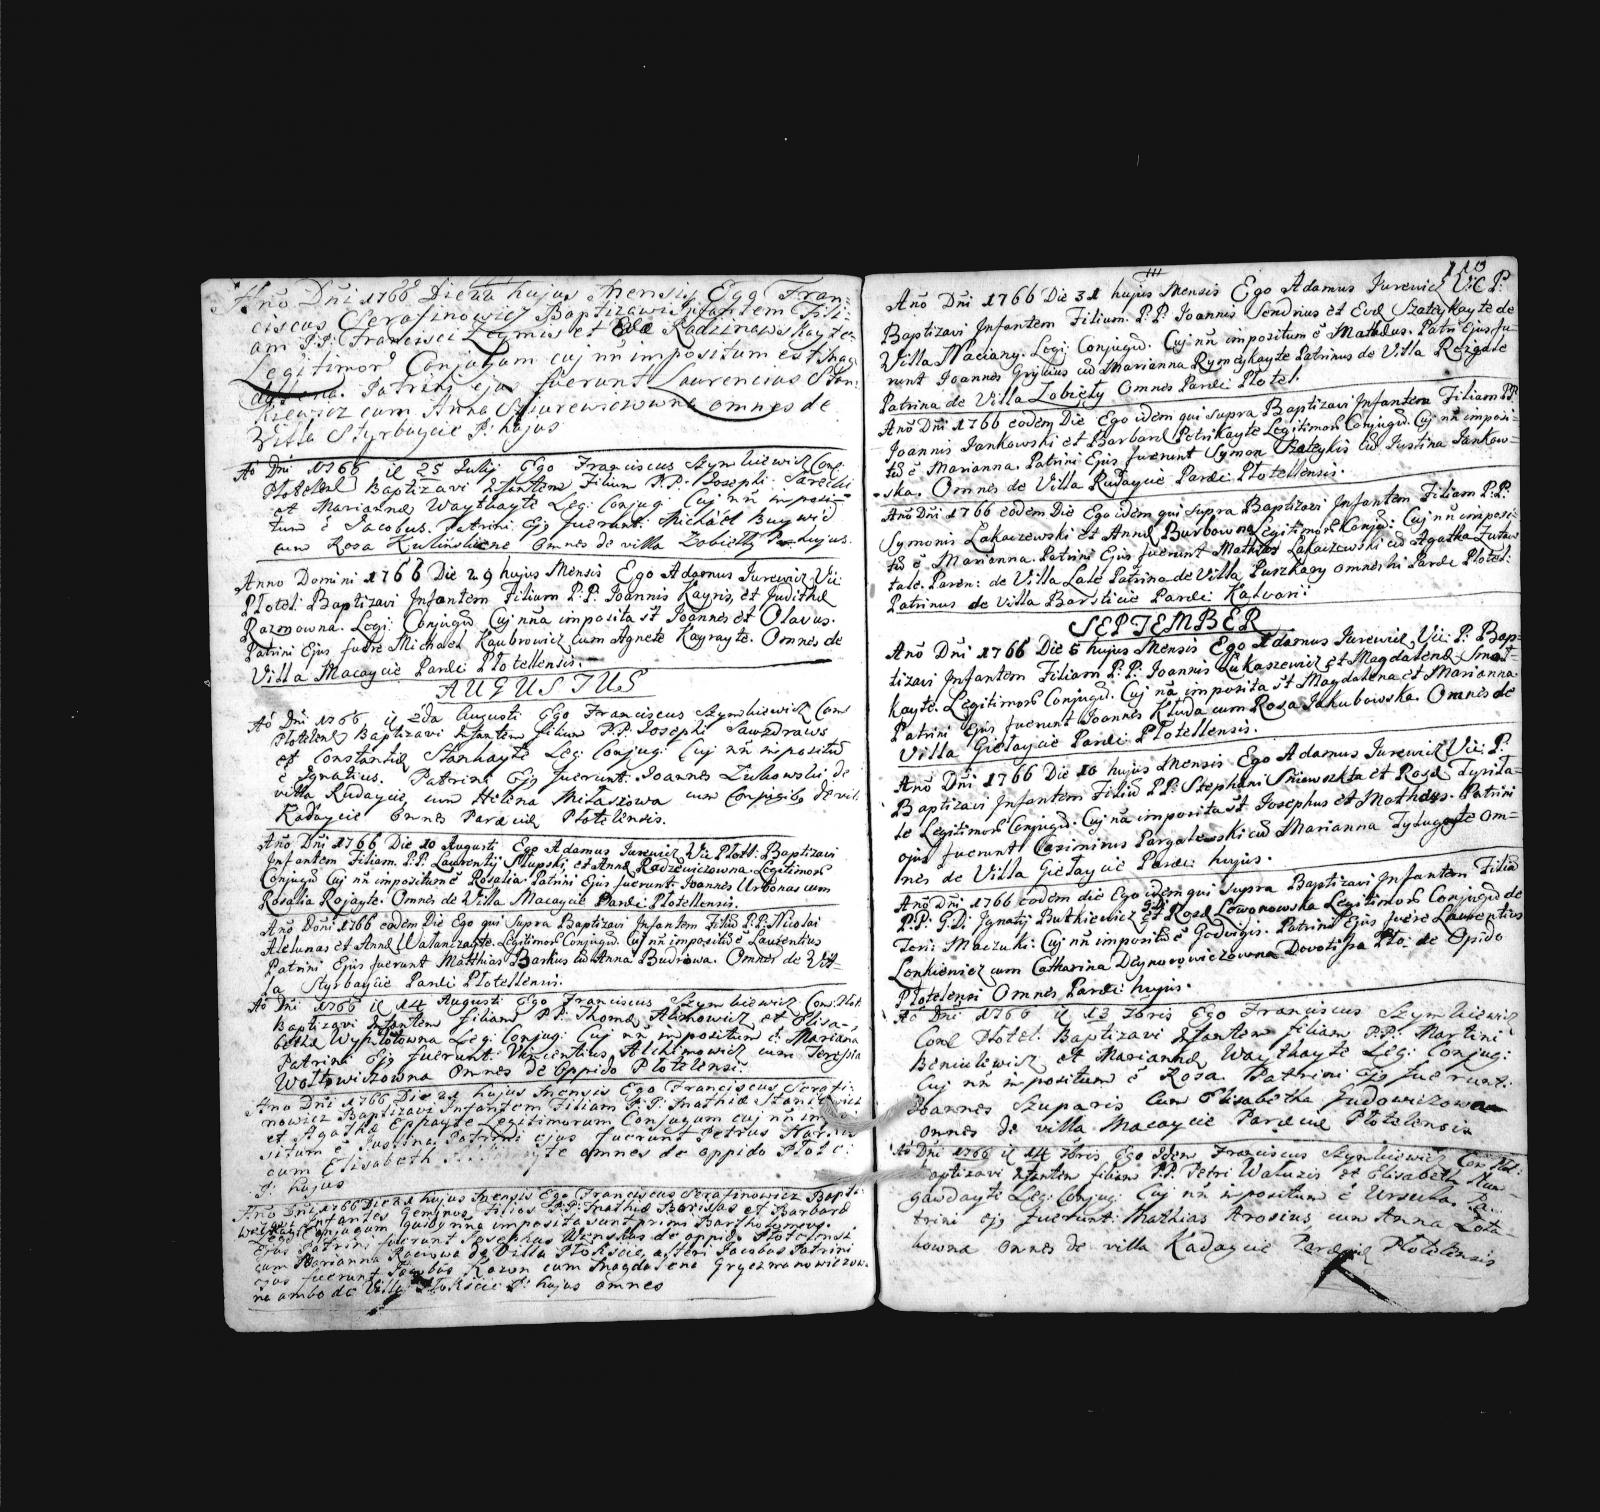 Año Dni 1766 Die 22 hujus Mensis Ego Fran=
ciscus Serafinowicz Baptizavi Infantem Fili=
am P.P. Francisci Lezmis et Evæ Radzinowskayte
Legitimor Conjugum cuj nñ impositum est Mag
dalena. Patrini ejus fuerunt Laurencius Stan=
kiewicz cum Anna omnes de
Villa Styrbaycie P: hujus
Aō Dni 1766 il 25 Julij Ego Franciscus Szymkiewicz Com
Plotelen Baptizavi Infantem Filium P.P. Josephi
et Mariannæ Waythayte Leg: Conjug: Cuj nñ imposi=
tum ē Jacobus. Patrini Ejꝯ fuerunt: Michaël Buywid
cum Rosa Kulinskiene Omnes de villa Zobielly P. hujus.
Anno Domini 1766 Die 29 hujus Mensis Ego Adamus Jurewicz Vic:
Plotel: Baptizavi Infantem Filium P.P. Joannis Kayris, et Judithæ
Razmowna. Legi: Conjugū. Cuj nña imposita sť Joannes et Olavus.
Patrini Ejus fuere Michael Kaubrowicz cum Agnete Kayrayte. Omnes de
Villa Macaycie Paræci Plotellensis.
AUGUSTUS
Aō Dni 1766 il 2da Augusti Ego Franciscus Szymkiewicz Com
Plotelens Baptizavi Infantem filium P.P. Josephi Sawzdraws
et Constantiæ Stankayte Leg: Conjug: Cuj nñ impositū
ē Ignatius. Patrini Ejꝯ fuerunt: Joannes Zubowski de
villa Rudaycie, cum Helena Milaszowa cum Conjugibꝯ de vil.
Kadaycie omnes Paræciæ Plotelensis.
Año Dni 1766 Die 10 Augusti Ego Adamus Jurewicz Vic Plotl: Baptizavi
Infantem Filiam. P.P. Laurentij Slupski, et Annæ Radzewiczowna Legitimorꝯ
Conjugū Cuj nñ impositum ē Rosalia. Patrini Ejus fuerunt: Joannes Urbonas cum
Rosalia Rojayte. Omnes de Villa Macaycie Paræci Plotellensis.
Año Doni 1766 eodem Die Ego qui Supra Baptizavi Infantem Filiū P.P. Nicolai
Aelunas et Annæ Walanczayte. Legitimorꝯ Conjugū. Cuj nñ impositū ē Laurentius
Patrini Ejus fuerunt Matthias Barkus cū Anna Budriowa. Omnes de Vil=
la Styrbaycie Paræci Plotellensis.
Aō Dni 1766 il 14 Augusti Ego Franciscus Szymkiewicz Com: Plot
Baptizavi Infantem filiam P.P. Thomæ Alimowicz et Elisa=
bethæ Leg: Conjug: Cuj nñ impositum ē Marianna
Patrini Ejꝯ fuerunt: Vincentius Alchimowicz cum Teressia
Woltowiczowna omnes de Oppido Plotelensi.
Año Dñi 1766 Die 21 hujus Mensis Ego Franciscus Serafi:
nowicz Baptizavi Infantem Filiam P.P. Mathiæ
et Agathæ Legitimorum Conjugum cuj nñ im
situm ē Justina Patrini ejus fuerunt Petrus
cum Elisabeth omnes de oppido Plote:
P: hujus
Año Dñi 1766 Die 21 hujus Mensis Ego Franciscus Serafinowicz Bapti:
Infantes Geminos Filios P.P. Mathiæ et Barbaræ
Legi: Conjugum quibꝯ nña imposita sunt primi Bartholomeus.
Ejus Patrini fuerunt Josephus Wenskus de oppido Plotelensi
cum Marianna Racowa de Villa Plokscie, alteri Jacobus Patrini
ejus fuerunt Jacobus Razon cum Magdalena Gryczmanowiczow
na ambo de Villa Plokscie P: hujus omnes
113
Año Dñi 1766 Die 31 hujus Mensis Ego Adamus Jurewicz Vic P.
Baptizavi Infantem Filium. P.P. Joannis Sendrius et Evæ Szateykayte de
Villa Naciany. Legi: Conjugū. Cuj nñ impositum ē Mathæus. Patri Ejus fu=
runt Joannes Gryblus cū Marianna Rymeykayte Patrinus de Villa Rezgale
Patrina de Villa Zobielly Omnes Paræci Plotel.
Año Dñi 1766 eodem Die Ego idem qui supra Baptizavi Infantem Filiam P.P.
Joannis Jankowski et Barbaræ Petrikayte Legitimorꝯ Conjugū. Cuj nñ imposi=
tū ē Marianna. Patrini Ejus fuerunt Symon Szateykis cū Justina Jankow=
ska. Omnes de Villa Rudaycie Paræci Plotellensis.
Año Dñi 1766 eodem Die Ego idem qui supra Baptizavi Infantem Filiam P.P.
Symonis Lukaczewski et Annæ Burbowna Legitimorꝯ Conju: Cuj nñ imposi=
tū ē Marianna. Patrini Ejus fuerunt Mathias Lukaczewski cū Agatha
Paren: de Villa Lale Patrina de Villa Puszkary omnes hi Paræci Plotel:
Patrinus de Villa Barsticie Paræci Kalvari:
SEPTEMBER
Año Dñi 1766 Die 6 hujus Mensis Ego Adamus Jurewicz Vic: P: Bap=
tizavi Infantem Filiam P.P. Joannis Lukaszewicz et Magdalenæ
kayte. Legitimorꝯ Conjugū. Cuj nã imposita sť Magdalena et Marianna
Patrini Ejus fuerunt Joannes Kluda cum Rosa Jakubowska. Omnes de
Villa Gielaycie Paræci Plotellensis.
Año Dñi 1766 Die 10 hujus Mensis Ego Adamus Jurewicz Vic: P.
Baptizavi Infantem Filiū P.P. Stephani Sniewszkta et Rosæ
te Legitimorꝯ Conjugū. Cuj nã imposita sť Josephus et Matheus. Patrini
ejus fuerunt Casimirus Pargalewski cū Marianna Tydugayte Om=
nes de Villa Gielaycie Paræci hujus.
Año Dñi 1766 eodem die Ego idem qui Supra Baptizavi Infantem Filiā
P.P. G.D. Ignatij Butkiewicz et Rosæ Lewonowska Legitimorꝯ Conjugū de
Teri: Maczuki: Cuj nñ impositū ē Hedvigis. Patrini Ejus fuere Laurentius
Lenkiewicz cum Catharina Deynorowiczowna Devotissa Plo: de Opido
Plotelensi Omnes Paræci hujus.
Aō Dni 1766 il 13 7bris Ego Franciscus Szymkiewicz
Com Plotel: Baptizavi Infantem filiam P.P. Martini
Beniulewicz et Mariannæ Waythayte Leg: Conjug:
Cuj nñ impositum ē Rosa. Patrini Ejꝯ fuerunt:
Joannes Szuparis Cum Elisabetha Judowiczowna
omnes de villa Macaycie Paræciæ Plotelensis
Aō Dni 1766 il 14 7bris Ego Idem Franciscus Szymkiewicz Com Plot:
Baptizavi Infantem filiam P.P. Petri Waluzis et Elisabethæ Nar=
gawdayte Leg: Conjug: Cuj nñ impositum ē Ursula. Pa=
trini Ejꝯ fuerunt: Mathias Arosius cum Anna Lota=
kowna omnes de villa Kadaycie Paræciæ Plotelensis